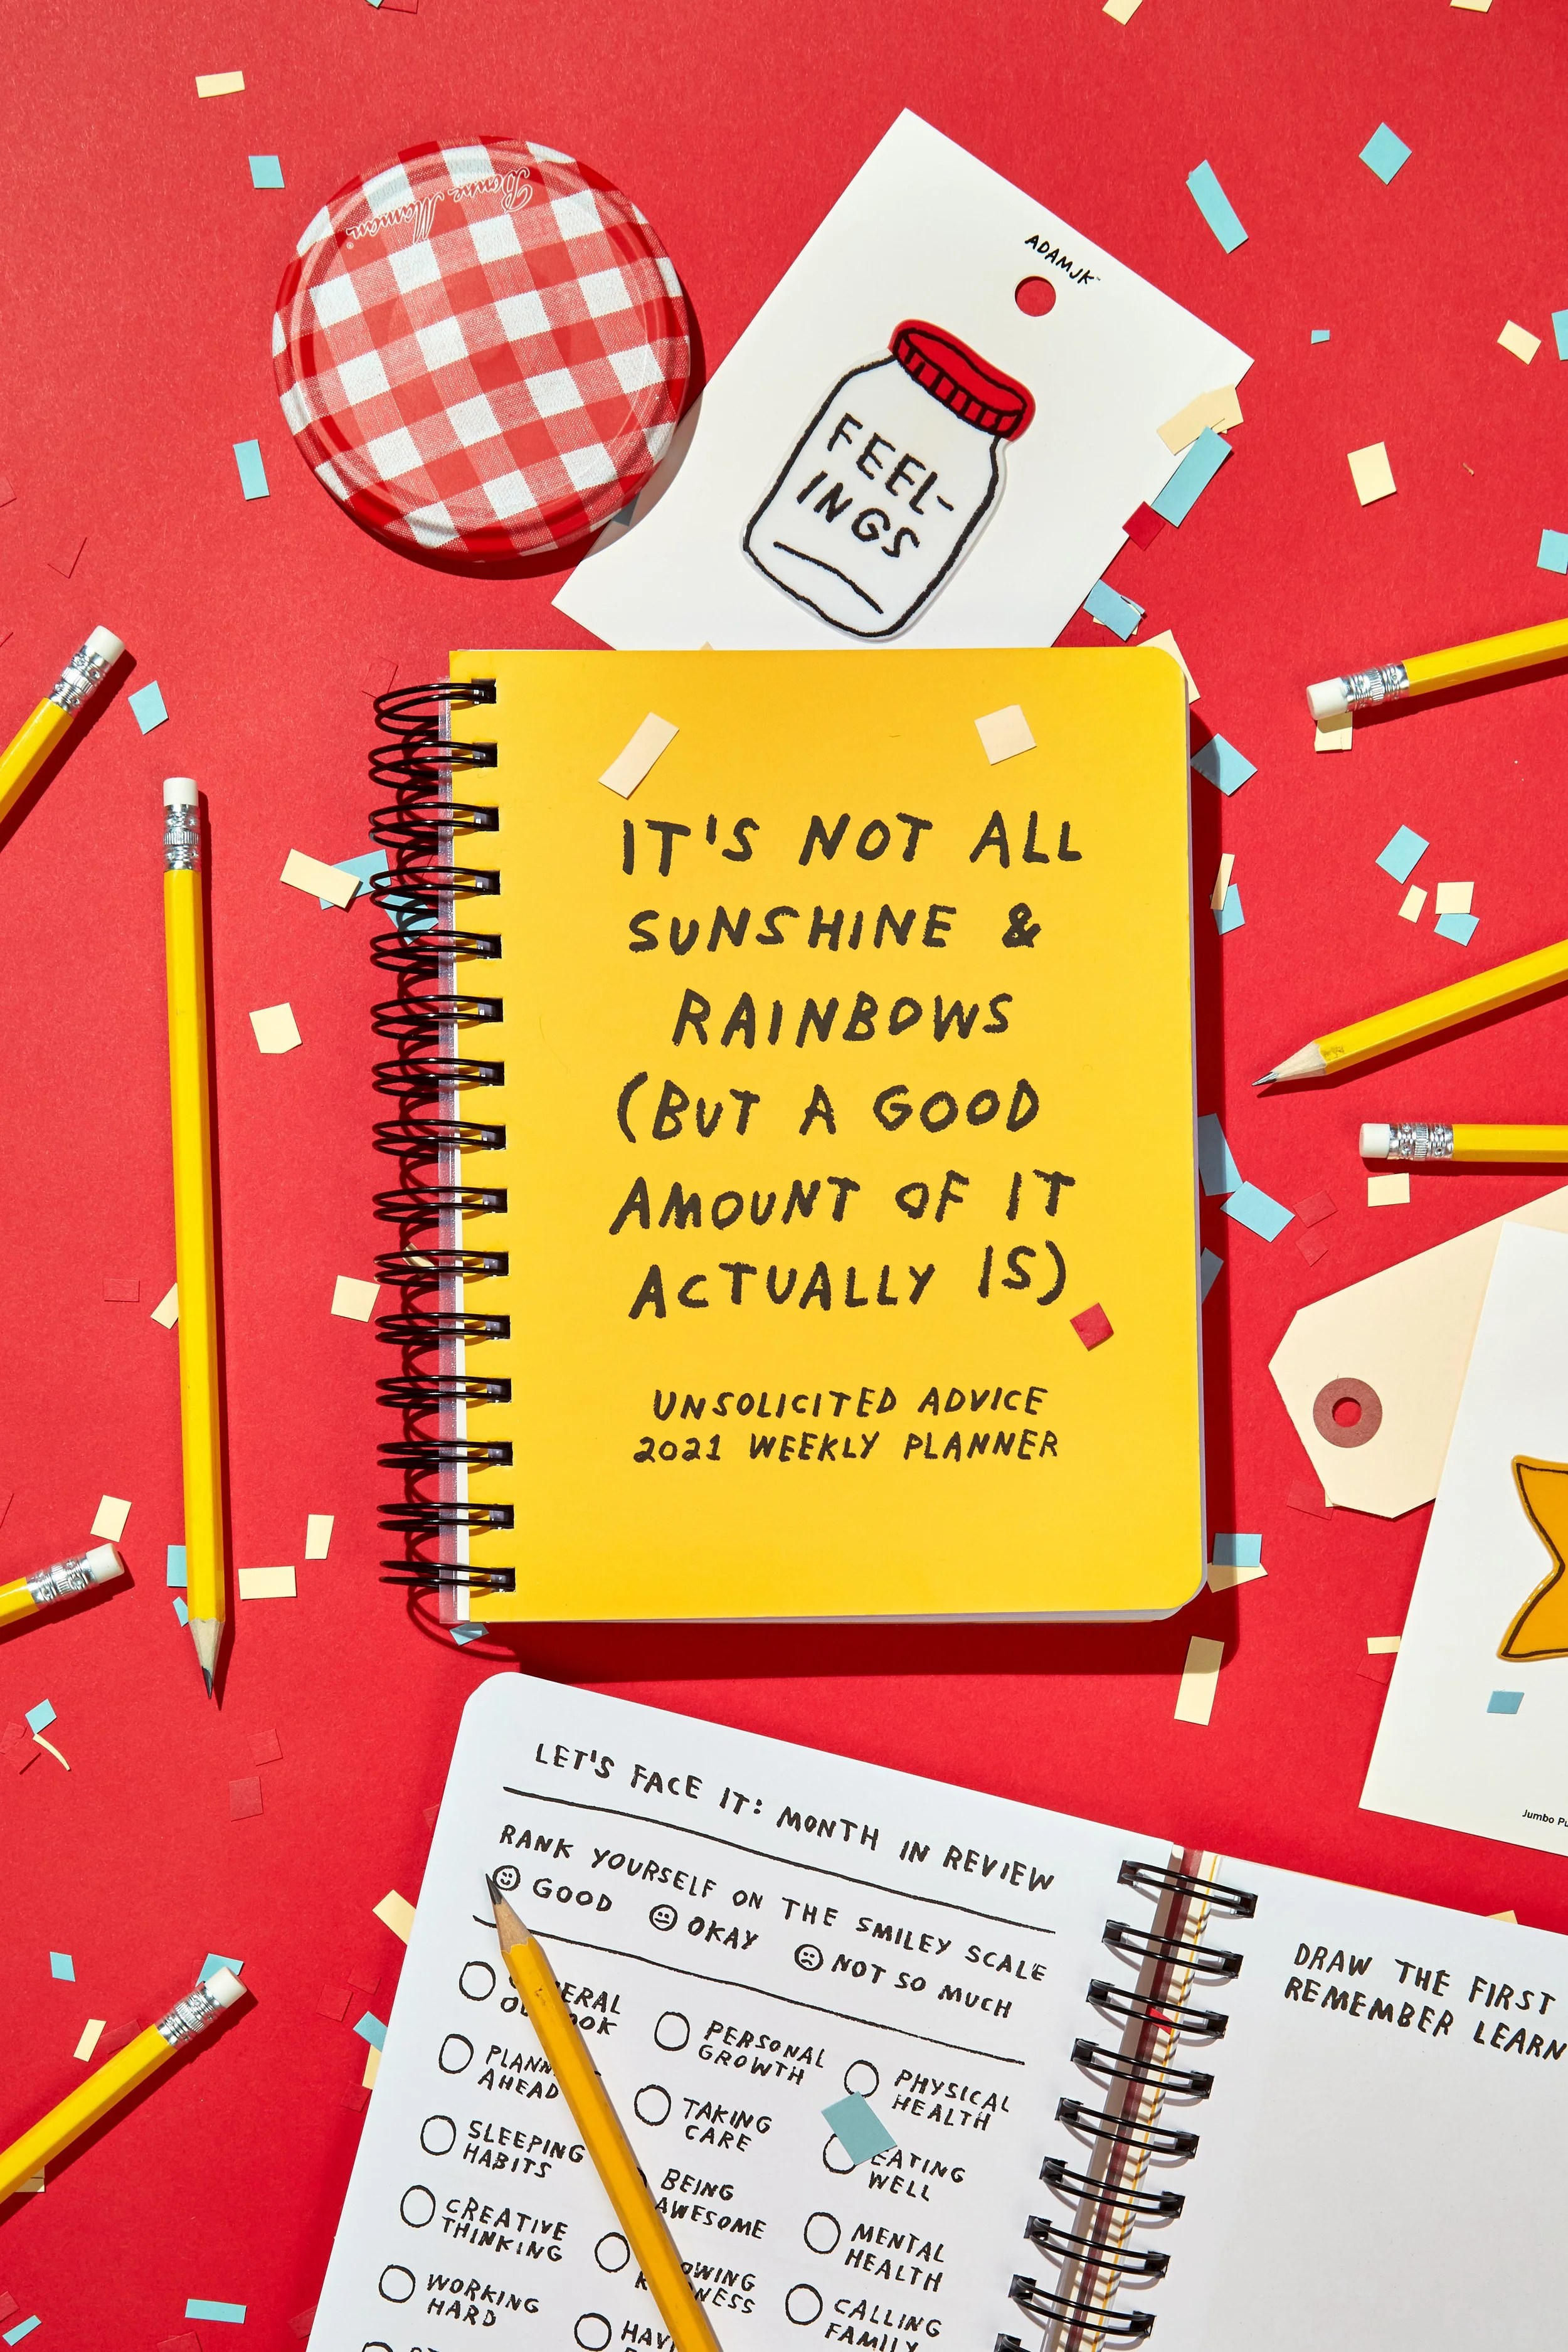 Bonne Maman
ADAMJK
FEEL-
INGS
IT'S NOT ALL
SUNSHINE &
RAINBOWS
(BUT A GOOD
AMOUNT OF IT
ACTUALLY IS)
UNSOLICITED ADVICE
2021 WEEKLY PLANNER
Jumbo
LET'S FACE IT: MONTH IN REVIEW
RANK YOURSELF ON THE SMILEY SCALE
GOOD OKAY NOT SO MUCH
OUTLOOK
PERSONAL
GROWTH
PHYSICAL
HEALTH
AHEAD
TAKING
CARE
EATING
WELL
SLEEPING
HABITS
BEING
AWESOME
MENTAL
HEALTH
CREATIVE
THINKING
CALLING
FAMILY
WORKING
HARD
DRAW THE FIRST
REMEMBER LEARN